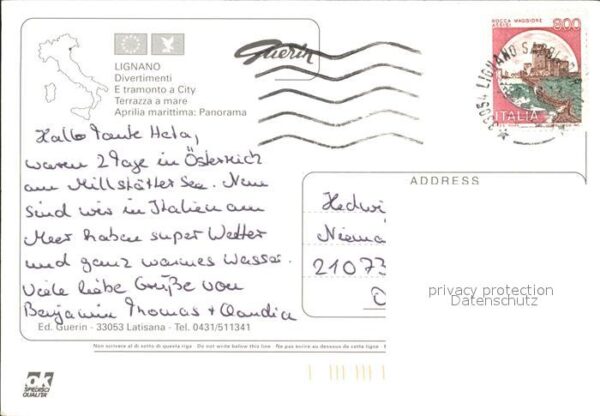 Guerin
LIGNANO
Divertimenti
E tramonto a City
Terrazza a mare
Aprilia marittima: Panorama
ROCCA MAGGIORE
ASSISI
800
ITALIA
33054 LIGNANO
Hallo Tante Heta,
waren 2 Tage in Österreich
am Millstätter See. Nun
sind wir in Italien am
Meer haben super Wetter
und ganz warmes Wasser.
Viele liebe Grüße von
Benjamin Thomas + Claudia
ADDRESS
Hedwi
Niema
21073
privacy protection
Datenschutz
Ed. Guerin - 33053 Latisana - Tel. 0431/511341
Non scrivere al di sotto di questa riga - Do not write below this line - Ne pas ecrire au dessous de cette ligne
ok
SPEDISCI
QUALITA'